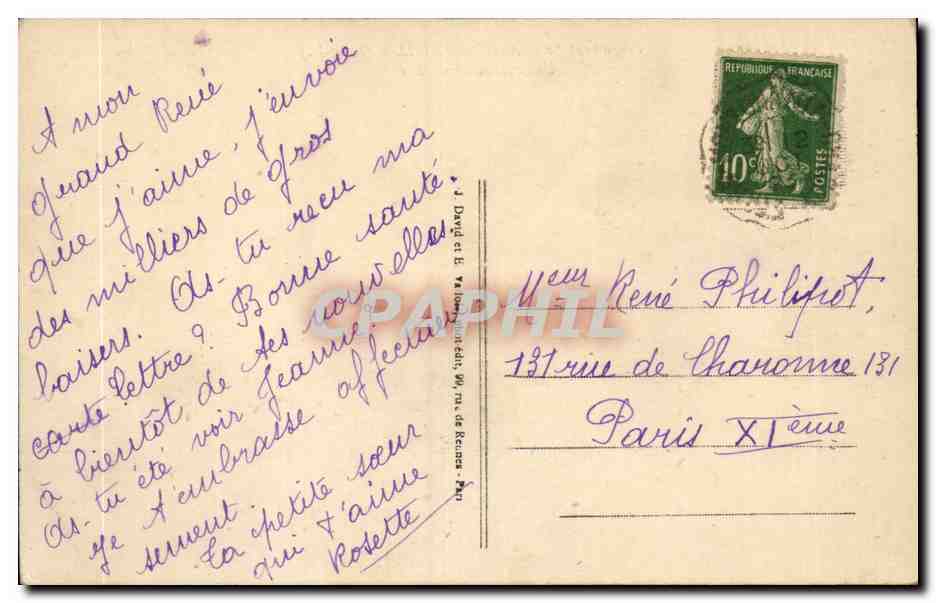 A mon
grand René
que j'aime, j'envoie
des milliers de gros
baisers. As-tu recu ma
carte lettre? Bonne santé.
à bientôt de tes nouvelles
As-tu été voir Jeanne?
Je t'embrasse affectueu
sement
Ta petite sœur
qui t'aime
Rosette
J. David et E. Vallois, edit, 99, rue de Rennes - Paris
REPUBLIQUE FRANÇAISE
10c
POSTES
Mcuur René Philipot,
131 rue de Charonne 131
Paris XIème
CPAPHIL